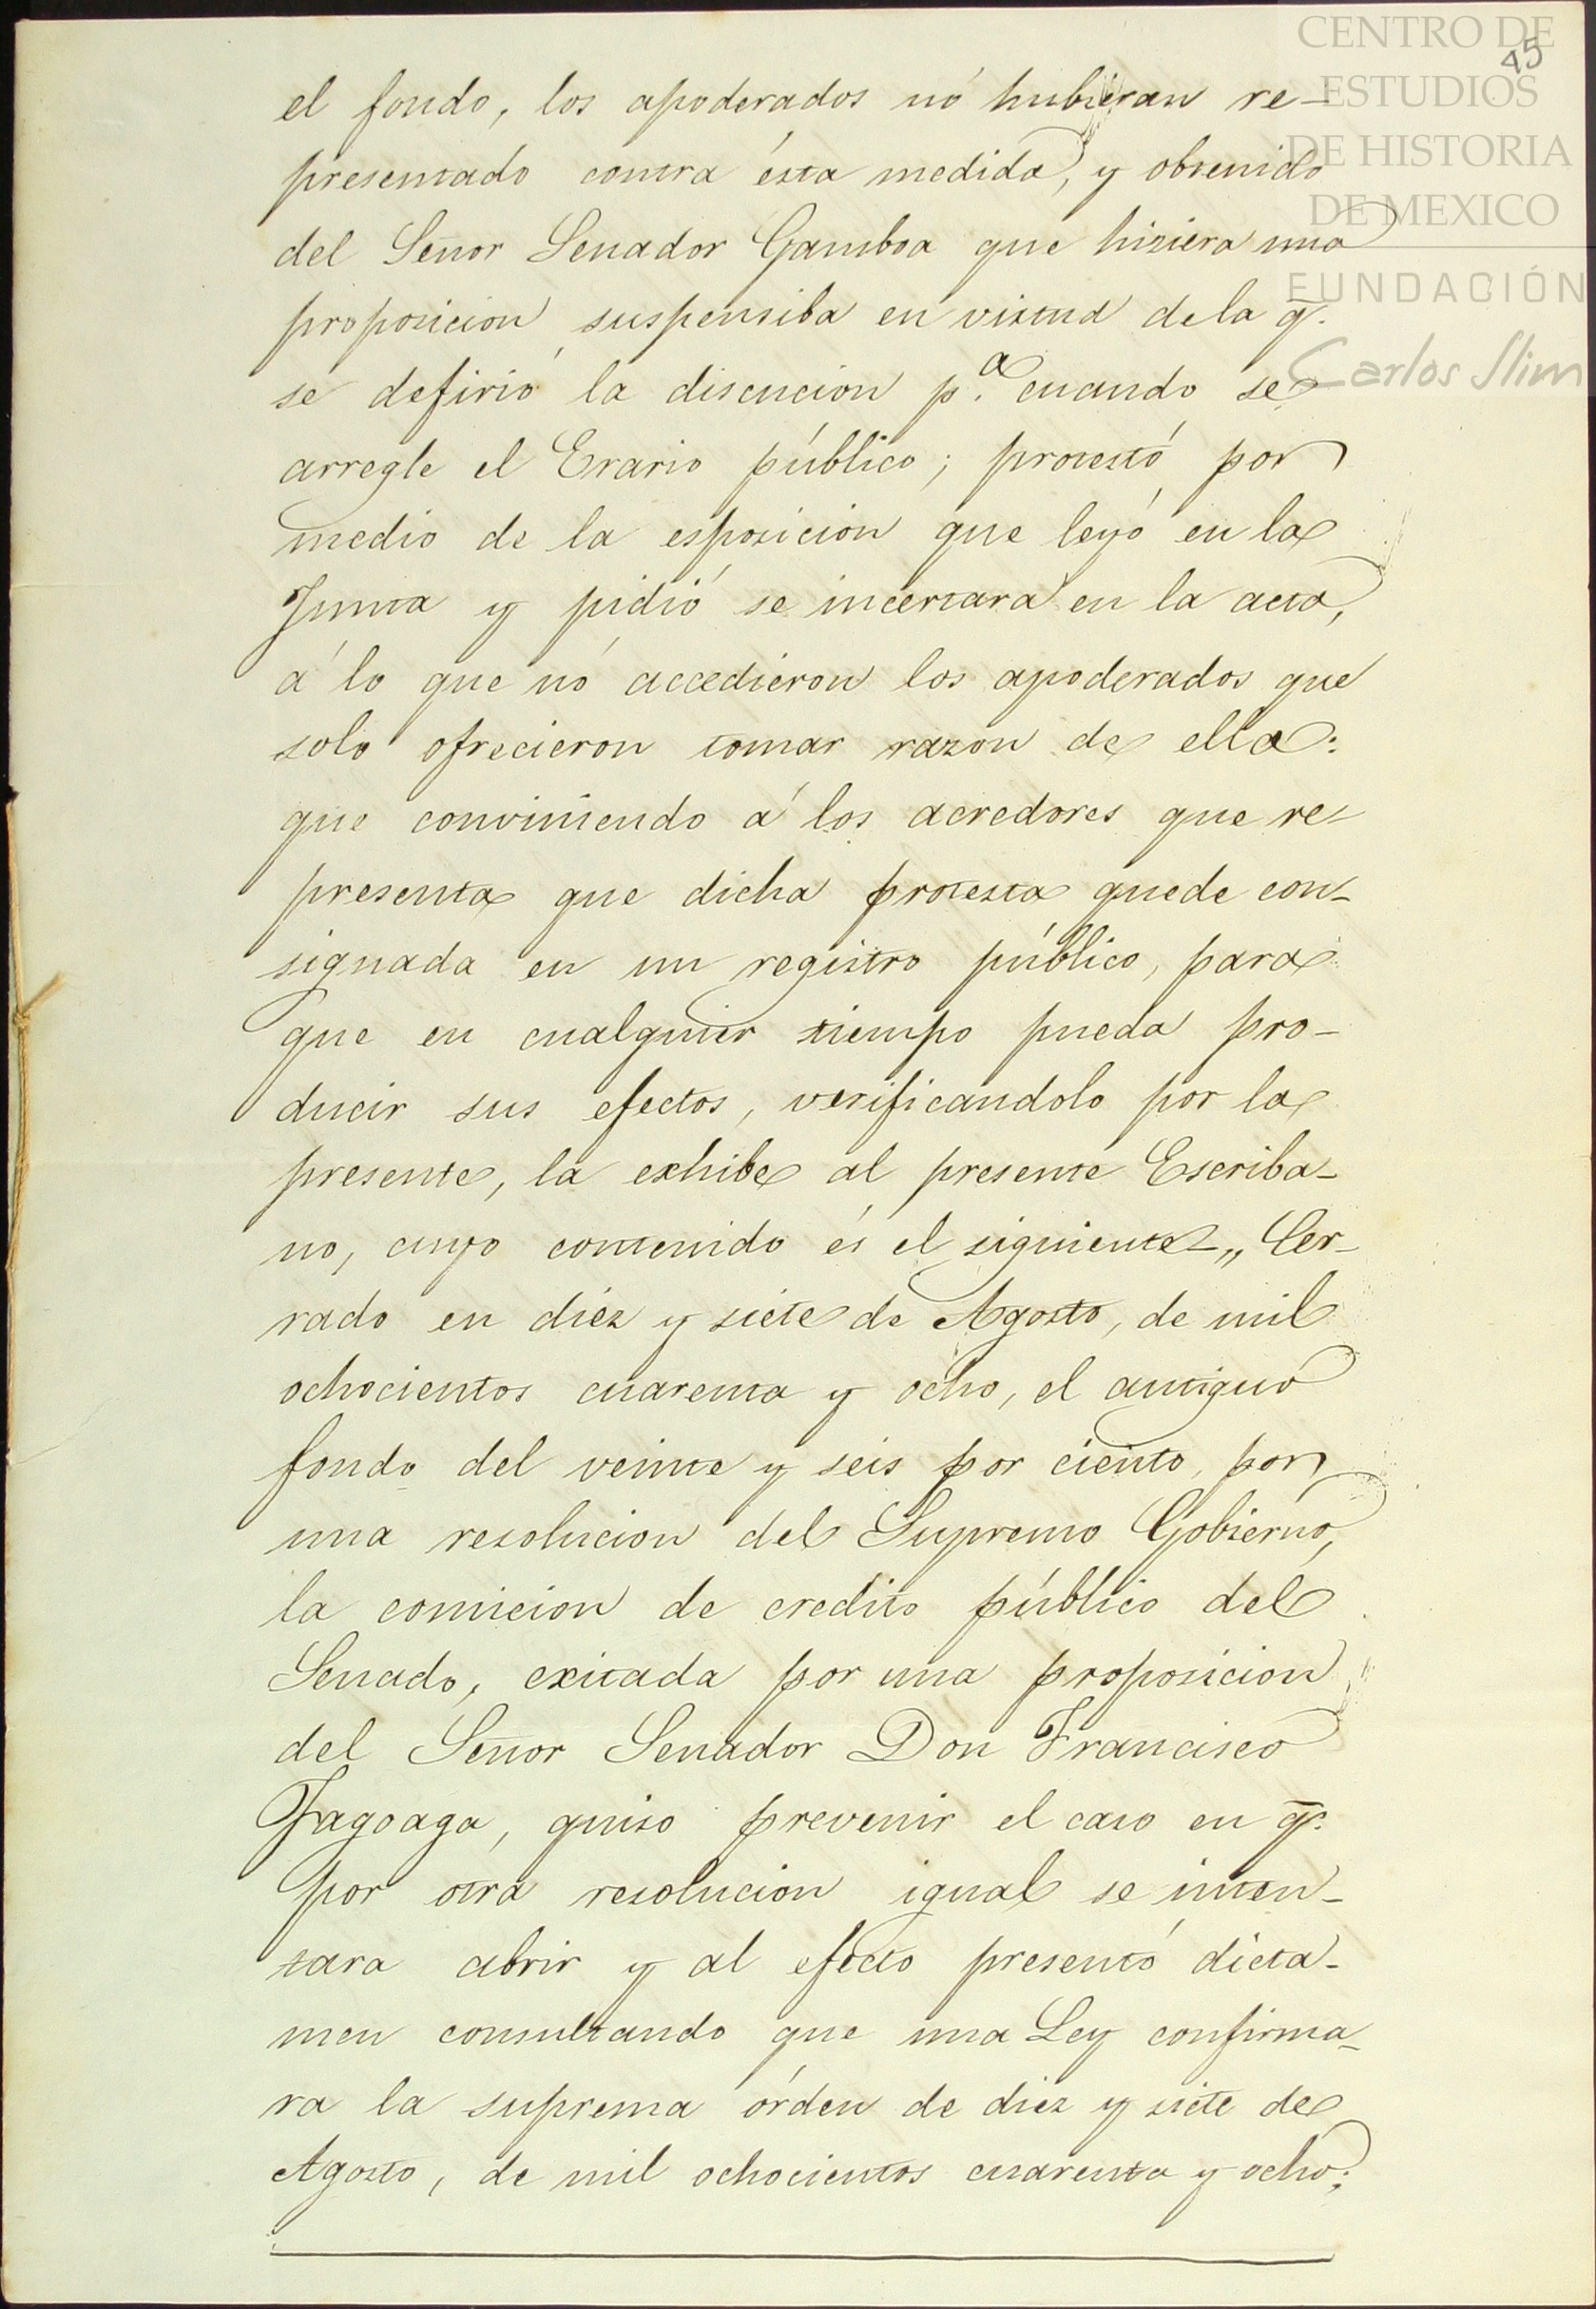 CENTRO DE
ESTUDIOS
DE HISTORIA
DE MEXICO
FUNDACIÓN
Carlos Slim
45
el fondo, los apoderados nó hubieran re-
presentado contra ésta medida, y obtenido
del Señor Senador Gamboa que hiziera una
proposicion suspensiba en virtud de la q̄.
se defirió la discucion p.ª cuando se
arregle el Erario público; protestó por
medio de la esposicion que leyó en la
Junta y pidió se incertara en la acta,
á lo que nó accedieron los apoderados que
solo ofrecieron tomar razon de ella:
que conviniendo á los acredores que re-
presenta que dicha protesta quede con-
signada en un registro público, para
que en cualquier tiempo pueda pro-
ducir sus efectos, verificandolo por la
presente, la exhibe al presente Escriba-
no, cuyo contenido és el siguiente „ Cer-
rado en diez y siete de Agosto, de mil
ochocientos cuarenta y ocho, el antiguo
fondo del veinte y seis por ciento, por
una resolucion del Supremo Gobierno,
la comicion de credito público del
Senado, exitada por una proposicion
del Señor Senador Don Francisco
Fagoaga, quiso prevenir el caso en q̄.
por otra resolucion igual se inten-
tara abrir y al efecto presentó dicta-
men consultando que una Ley confirma-
ra la suprema órden de diez y siete de
Agosto, de mil ochocientos cuarenta y ocho;